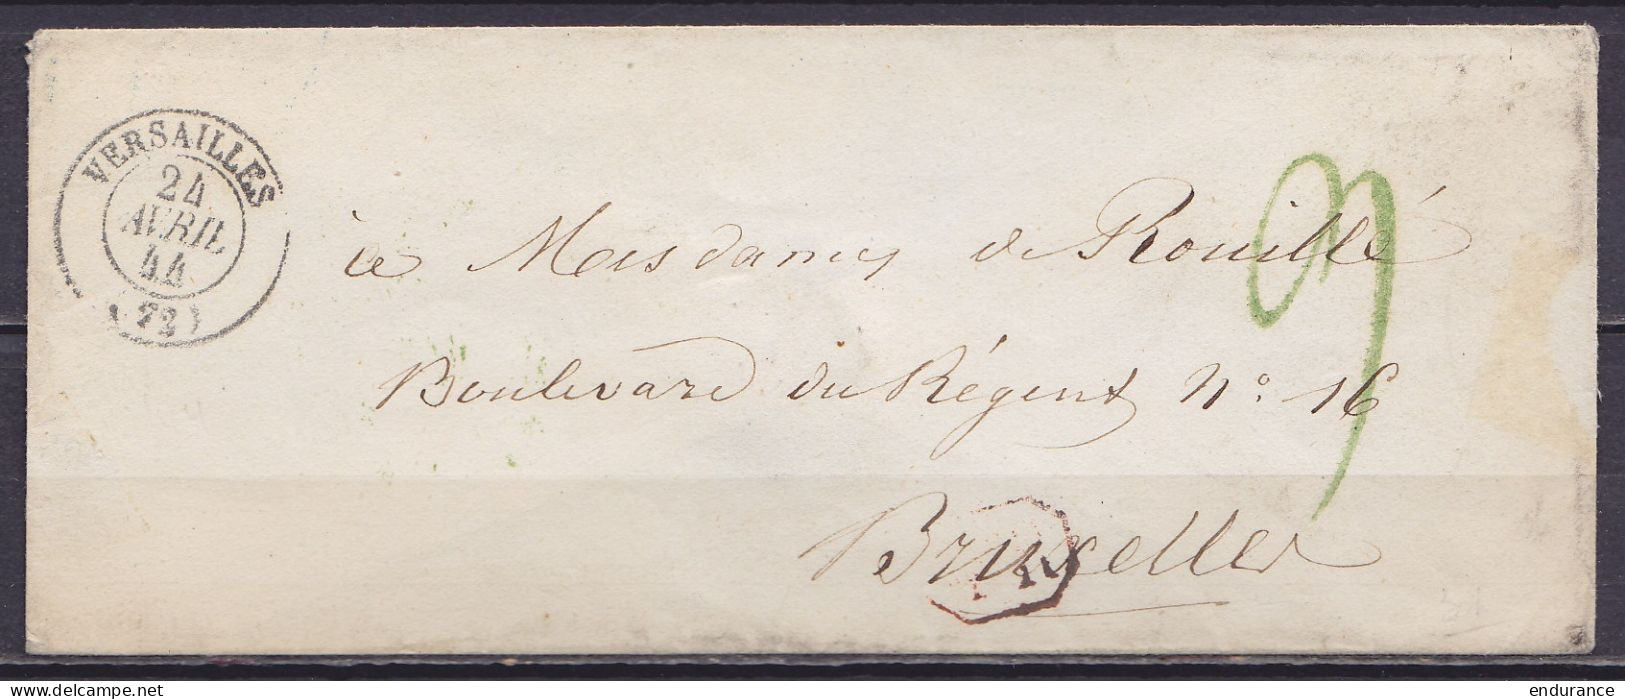 VERSAILLES
24
AVRIL
44
(72)
à Mesdames de Rouillé
Boulevard du Régent N° 16
Bruxelles
9
delcampe.net
endurance